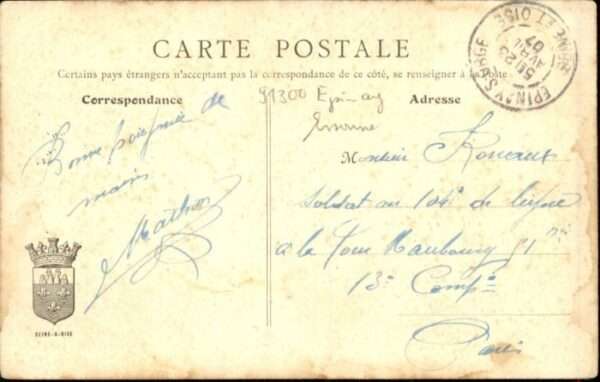 CARTE POSTALE
Certains pays étrangers n'acceptent pas la correspondance de ce côté, se renseigner à la Poste
Correspondance
91300 Epinay
Essonne
Adresse
Bonne poignée de
mains
Mathieu
Monsieur
Soldat au 104e de ligne
a la Tour Maubourg
13e Compie
Paris
SEINE-&-OISE
EPINAY S/ ORGE
SEINE ET OISE
5E 26
AVRIL
07